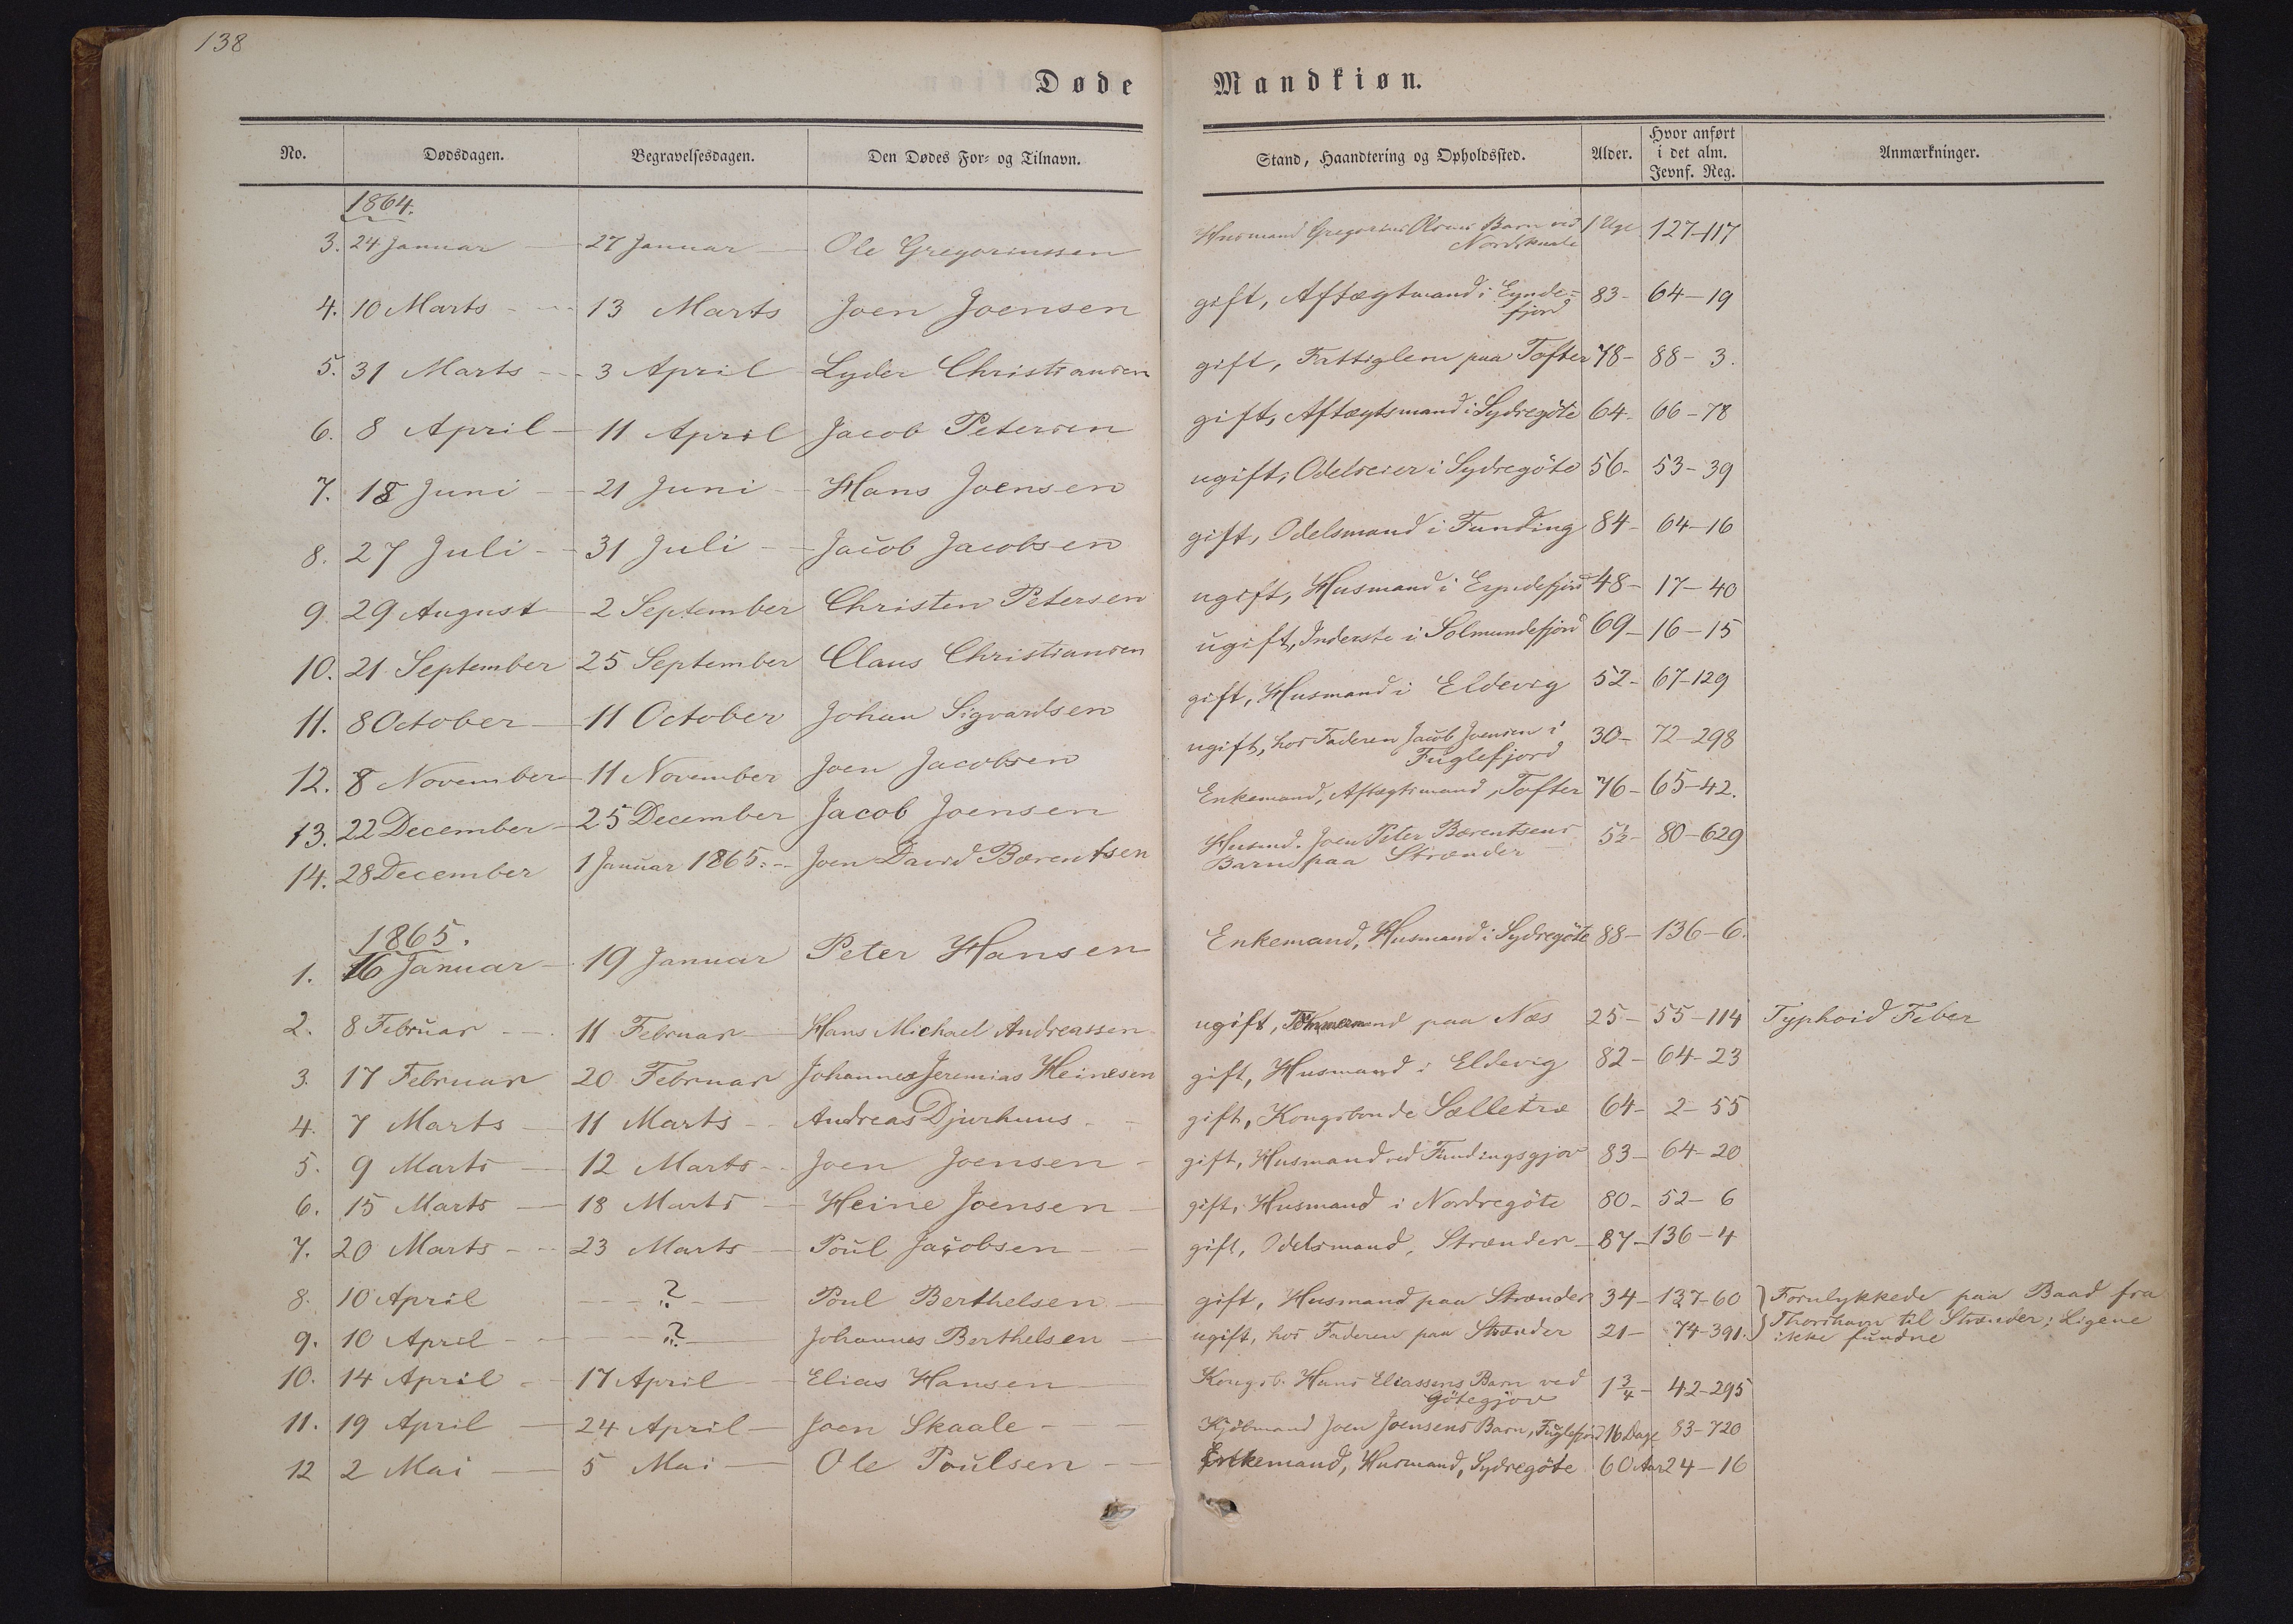 138
Døde Mandkiøn.
No. Dødsdagen. Begravelsesdagen. Den Dødes For- og Tilnavn. Stand, Haandtering og Opholdssted. Alder. Hvor anført i det alm. Jevnf. Reg. Anmærkninger.
1864.
3. 24 Januar 27 Januar Ole Gregoriussen Husmand Gregorius Olsens Barn ved 1 Uge 127-117
Nordskaale
4. 10 Marts 13 Marts Joen Joensen gift, Aftægtmand i Eynde= 83- 64-19
fjord
5. 31 Marts 3 April Lyder Christiansen gift, Fattiglem paa Tofter 78- 88-3.
6. 8 April 11 April Jacob Petersen gift, Aftægtsmand i Sydregöte 64- 66-78
7. 18 Juni 21 Juni Hans Joensen ugift, Odelseier i Sydregöte 56- 53-39
8. 27 Juli 31 Juli Jacob Jacobsen gift, Odelsmand i Funding 84- 64-16
9. 29 August 2 September Christen Petersen ugift, Husmand i Eyndefjord 48- 17-40
10. 21 September 25 September Claus Christiansen ugift, Inderste i Solmundefjord 69- 16-15
11. 8 October 11 October Johan Sigvardsen gift, Husmand i Eldevig 52- 67-129
12. 8 November 11 November Joen Jacobsen ugift, hos Faderen Jacob Joensen i 30- 72-298
Fuglefjord
13. 22 December 25 December Jacob Joensen Enkemand, Aftægtsmand, Tofter 76- 65-42.
14. 28 December 1 Januar 1865. Joen David Bærentsen Husmd. Joen Peter Bærentsens 5½- 80-629
Barn paa Strænder
1865.
1. 16 Januar 19 Januar Peter Hansen Enkemand, Husmand i Sydregöte 88- 136-6.
2. 8 Februar 11 Februar Hans Michael Andreassen ugift, paa Næs 25- 55-114 Typhoid Feber
3. 17 Februar 20 Februar Johannes Jeremias Heinesen gift, Husmand i Eldevig 82- 64-23
4. 7 Marts 11 Marts Andreas Djurhuus gift, Kongsbonde Sælletræ 64- 2-55
5. 9 Marts 12 Marts Joen Joensen gift, Husmand ved Fundingsgjov 83- 64-20
6. 15 Marts 18 Marts Heine Joensen gift, Husmand i Nordregöte 80- 52-6
7. 20 Marts 23 Marts Poul Jacobsen gift, Odelsmand, Strænder 87- 136-4
8. 10 April ? Poul Berthelsen gift, Husmand paa Strænder 34- 137-60 Forulykkede paa Baad fra
9. 10 April ? Johannes Berthelsen ugift, hos Faderen paa Strænder 21- 74-391. Thorshavn til Strænder; Ligene
ikke fundne
10. 14 April 17 April Elias Hansen Kongsb. Hans Eliassens Barn ved 1¾- 42-295
Götegjov
11. 19 April 24 April Joen Skaale Kjøbmand Joen Joensens Barn, Fuglefjord 16 Dage 83-720
12 2 Mai 5 Mai Ole Poulsen Enkemand, Husmand, Sydregöte 60 Aar 24-16